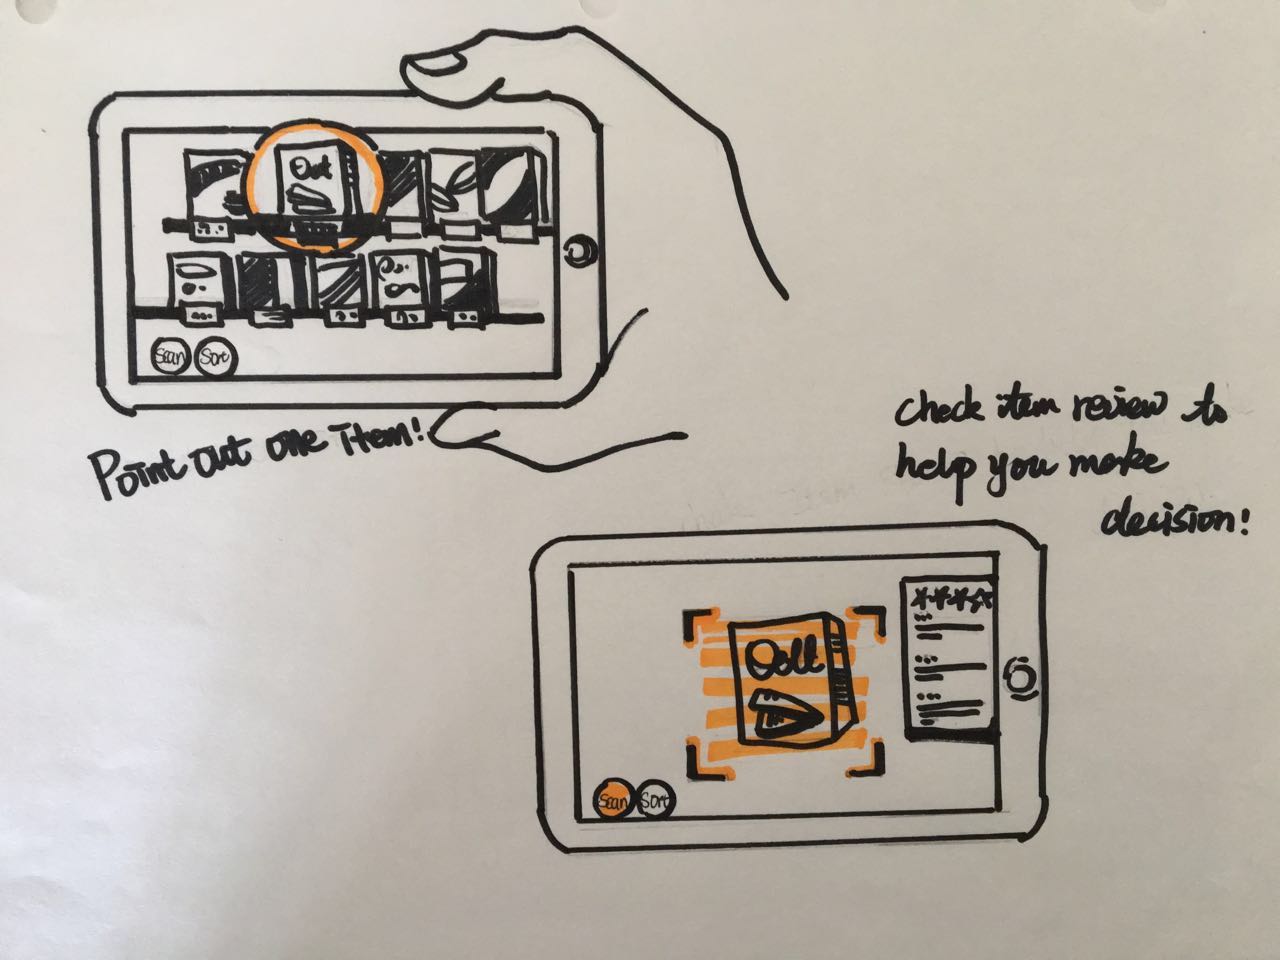 Scan
Sort
Point out one item!
check item review to
help you make
decision!
Scan
Sort